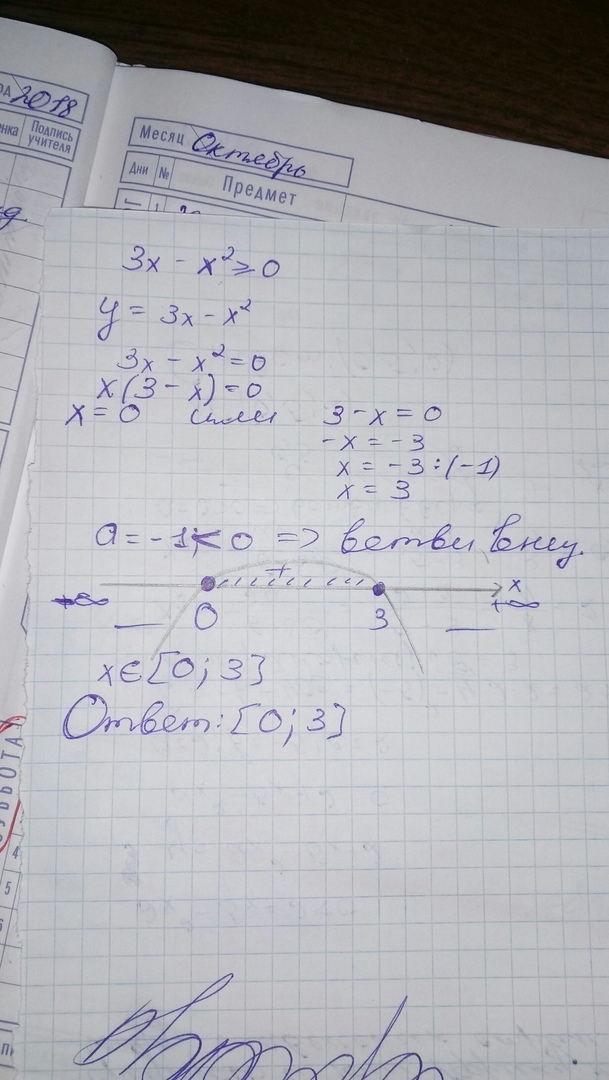 2018
Подпись
учителя
Месяц Октябрь
Дни № Предмет
3x - x² ⩾ 0
y = 3x - x²
3x - x² = 0
x(3 - x) = 0
x = 0 или 3 - x = 0
-x = -3
x = -3 : (-1)
x = 3
a = -1 < 0 => ветви вниз.
+ x
0 3
— —
x ∈ [0; 3]
Ответ: [0; 3]
4
5